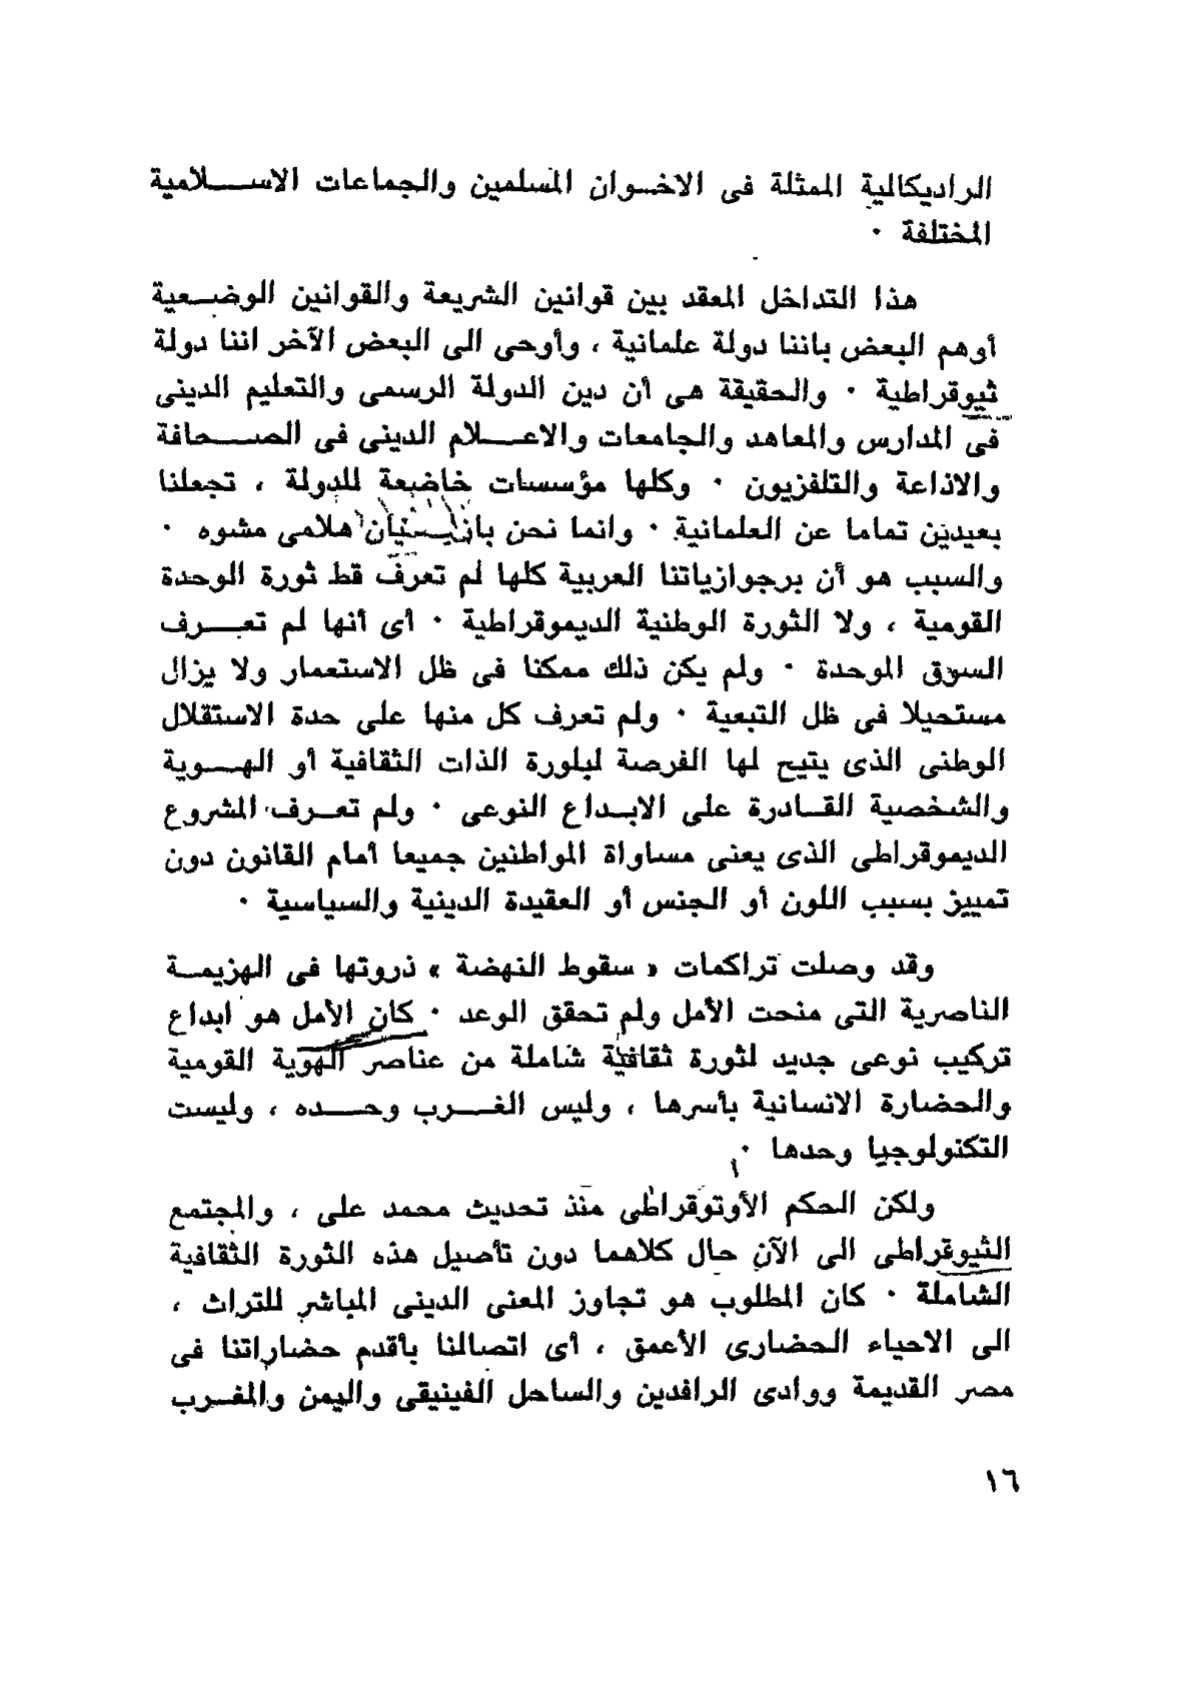 الراديكالية الممثلة فى الاخـوان المسلمين والجماعات الاسـلامية
المختلفة ٠
هذا التداخل المعقد بين قوانين الشريعة والقوانين الوضـعية
أوهم البعض باننا دولة علمانية ، وأوحى الى البعض الآخر اننا دولة
ثيوقراطية ٠ والحقيقة هى أن دين الدولة الرسمى والتعليم الدينى
فى المدارس والمعاهد والجامعات والاعـلام الدينى فى الصـحافة
والاذاعة والتلفزيون ٠ وكلها مؤسسات خاضعة للدولة ، تجعلنا
بعيدين تماما عن العلمانية ٠ وانما نحن بازاء هلامى مشوه ٠
والسبب هو أن برجوازياتنا العربية كلها لم تعرف قط ثورة الوحدة
القومية ، ولا الثورة الوطنية الديموقراطية ٠ أى أنها لم تعـرف
السوق الموحدة ٠ ولم يكن ذلك ممكنا فى ظل الاستعمار ولا يزال
مستحيلا فى ظل التبعية ٠ ولم تعرف كل منها على حدة الاستقلال
الوطنى الذى يتيح لها الفرصة لبلورة الذات الثقافية أو الهـوية
والشخصية القـادرة على الابـداع النوعى ٠ ولم تعـرف المشروع
الديموقراطى الذى يعنى مساواة المواطنين جميعا أمام القانون دون
تمييز بسبب اللون أو الجنس أو العقيدة الدينية والسياسية ٠
وقد وصلت تراكمات « سقوط النهضة » ذروتها فى الهزيمـة
الناصرية التى منحت الأمل ولم تحقق الوعد ٠ كان الأمل هو ابداع
تركيب نوعى جديد لثورة ثقافية شاملة من عناصر الهوية القومية
والحضارة الانسانية بأسرها ، وليس الغـرب وحـده ، وليست
التكنولوجيا وحدها ٠
ولكن الحكم الأوتوقراطى منذ تحديث محمد على ، والمجتمع
الثيوقراطى الى الآن حال كلاهما دون تأصيل هذه الثورة الثقافية
الشاملة ٠ كان المطلوب هو تجاوز المعنى الدينى المباشر للتراث ،
الى الاحياء الحضارى الأعمق ، أى اتصالنا بأقدم حضاراتنا فى
مصر القديمة ووادى الرافدين والساحل الفينيقى واليمن والمغـرب
١٦